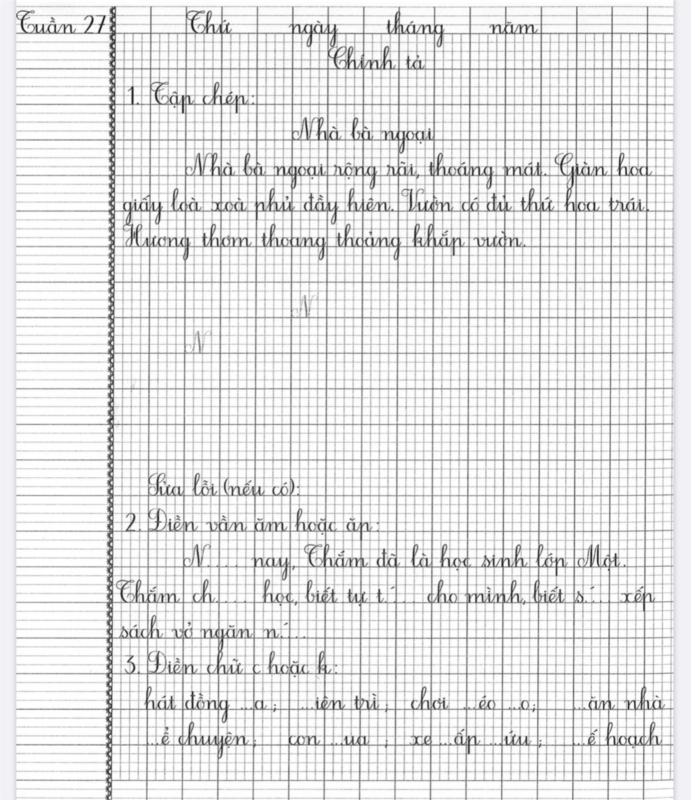 Tuần 27 Thứ ngày tháng năm
Chính tả
1. Tập chép:
Nhà bà ngoại
Nhà bà ngoại rộng rãi, thoáng mát. Giàn hoa
giấy loà xoà phủ đầy hiên. Vườn có đủ thứ hoa trái.
Hương thơm thoang thoảng khắp vườn.
N
N
Sửa lỗi (nếu có):
2. Điền vần ăm hoặc ăp:
N.... nay, Thắm đã là học sinh lớp Một.
Thắm ch.... học, biết tự t.´.. cho mình, biết s.´.. xếp
sách vở ngăn n.´...
3. Điền chữ c hoặc k:
hát đồng ...a; ...iên trì; chơi ...éo ...o; ...ăn nhà
...ể chuyện; con ...ua; xe ...ấp ...ứu; ...ế hoạch